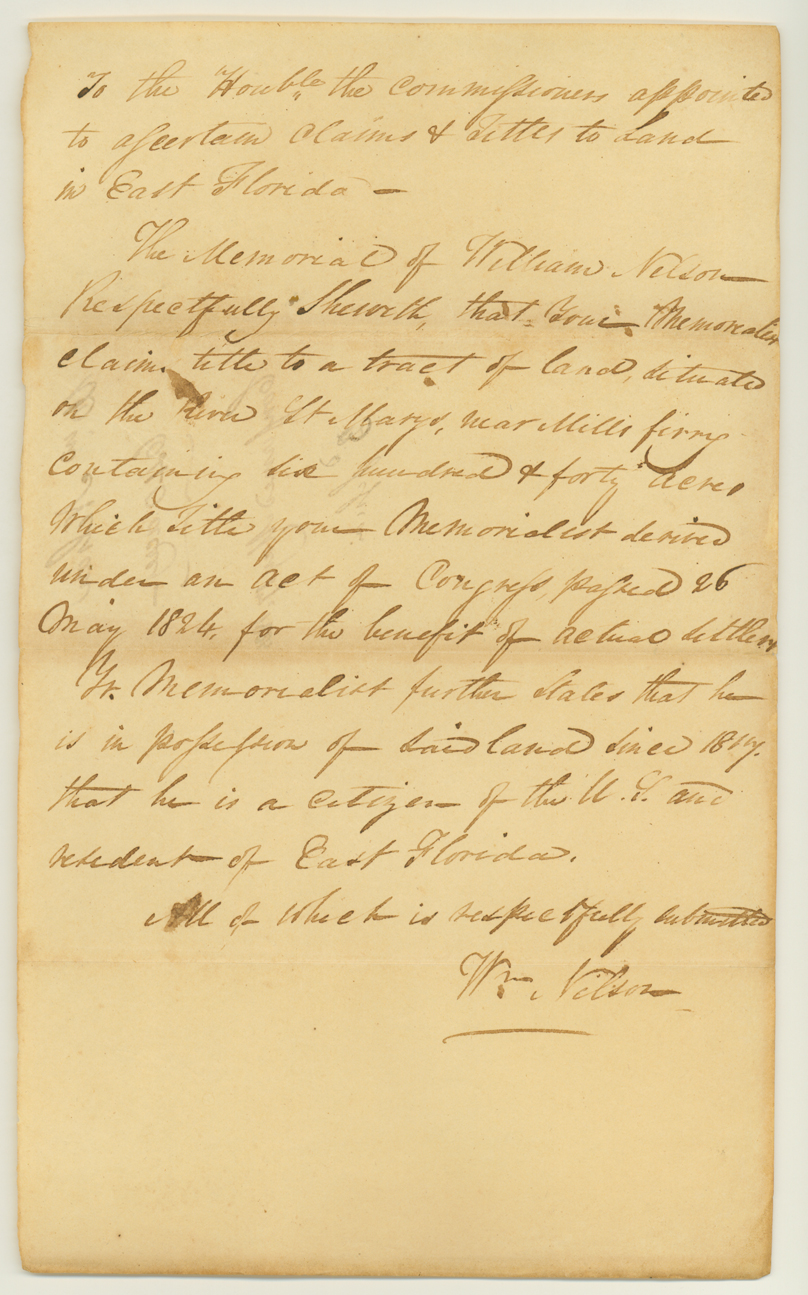 To the Honble. the Commissioners appointed
to ascertain Claims & Titles to Land
in East Florida –
The Memorial of William Nelson
Respectfully Sheweth, that Your Memorialist
claims title to a tract of land, situate
on the River St Marys, near Mills ferry
Containing six hundred & forty acres
Which Title your Memorialist derives
under an act of Congress, passed 26
May 1824, for the benefit of actual settlers
Yr. Memorialist further States that he
is in possession of said land since 1817.
that he is a citizen of the U.S. and
resident of East Florida.
All of which is respectfully submitted
Wm Nelson